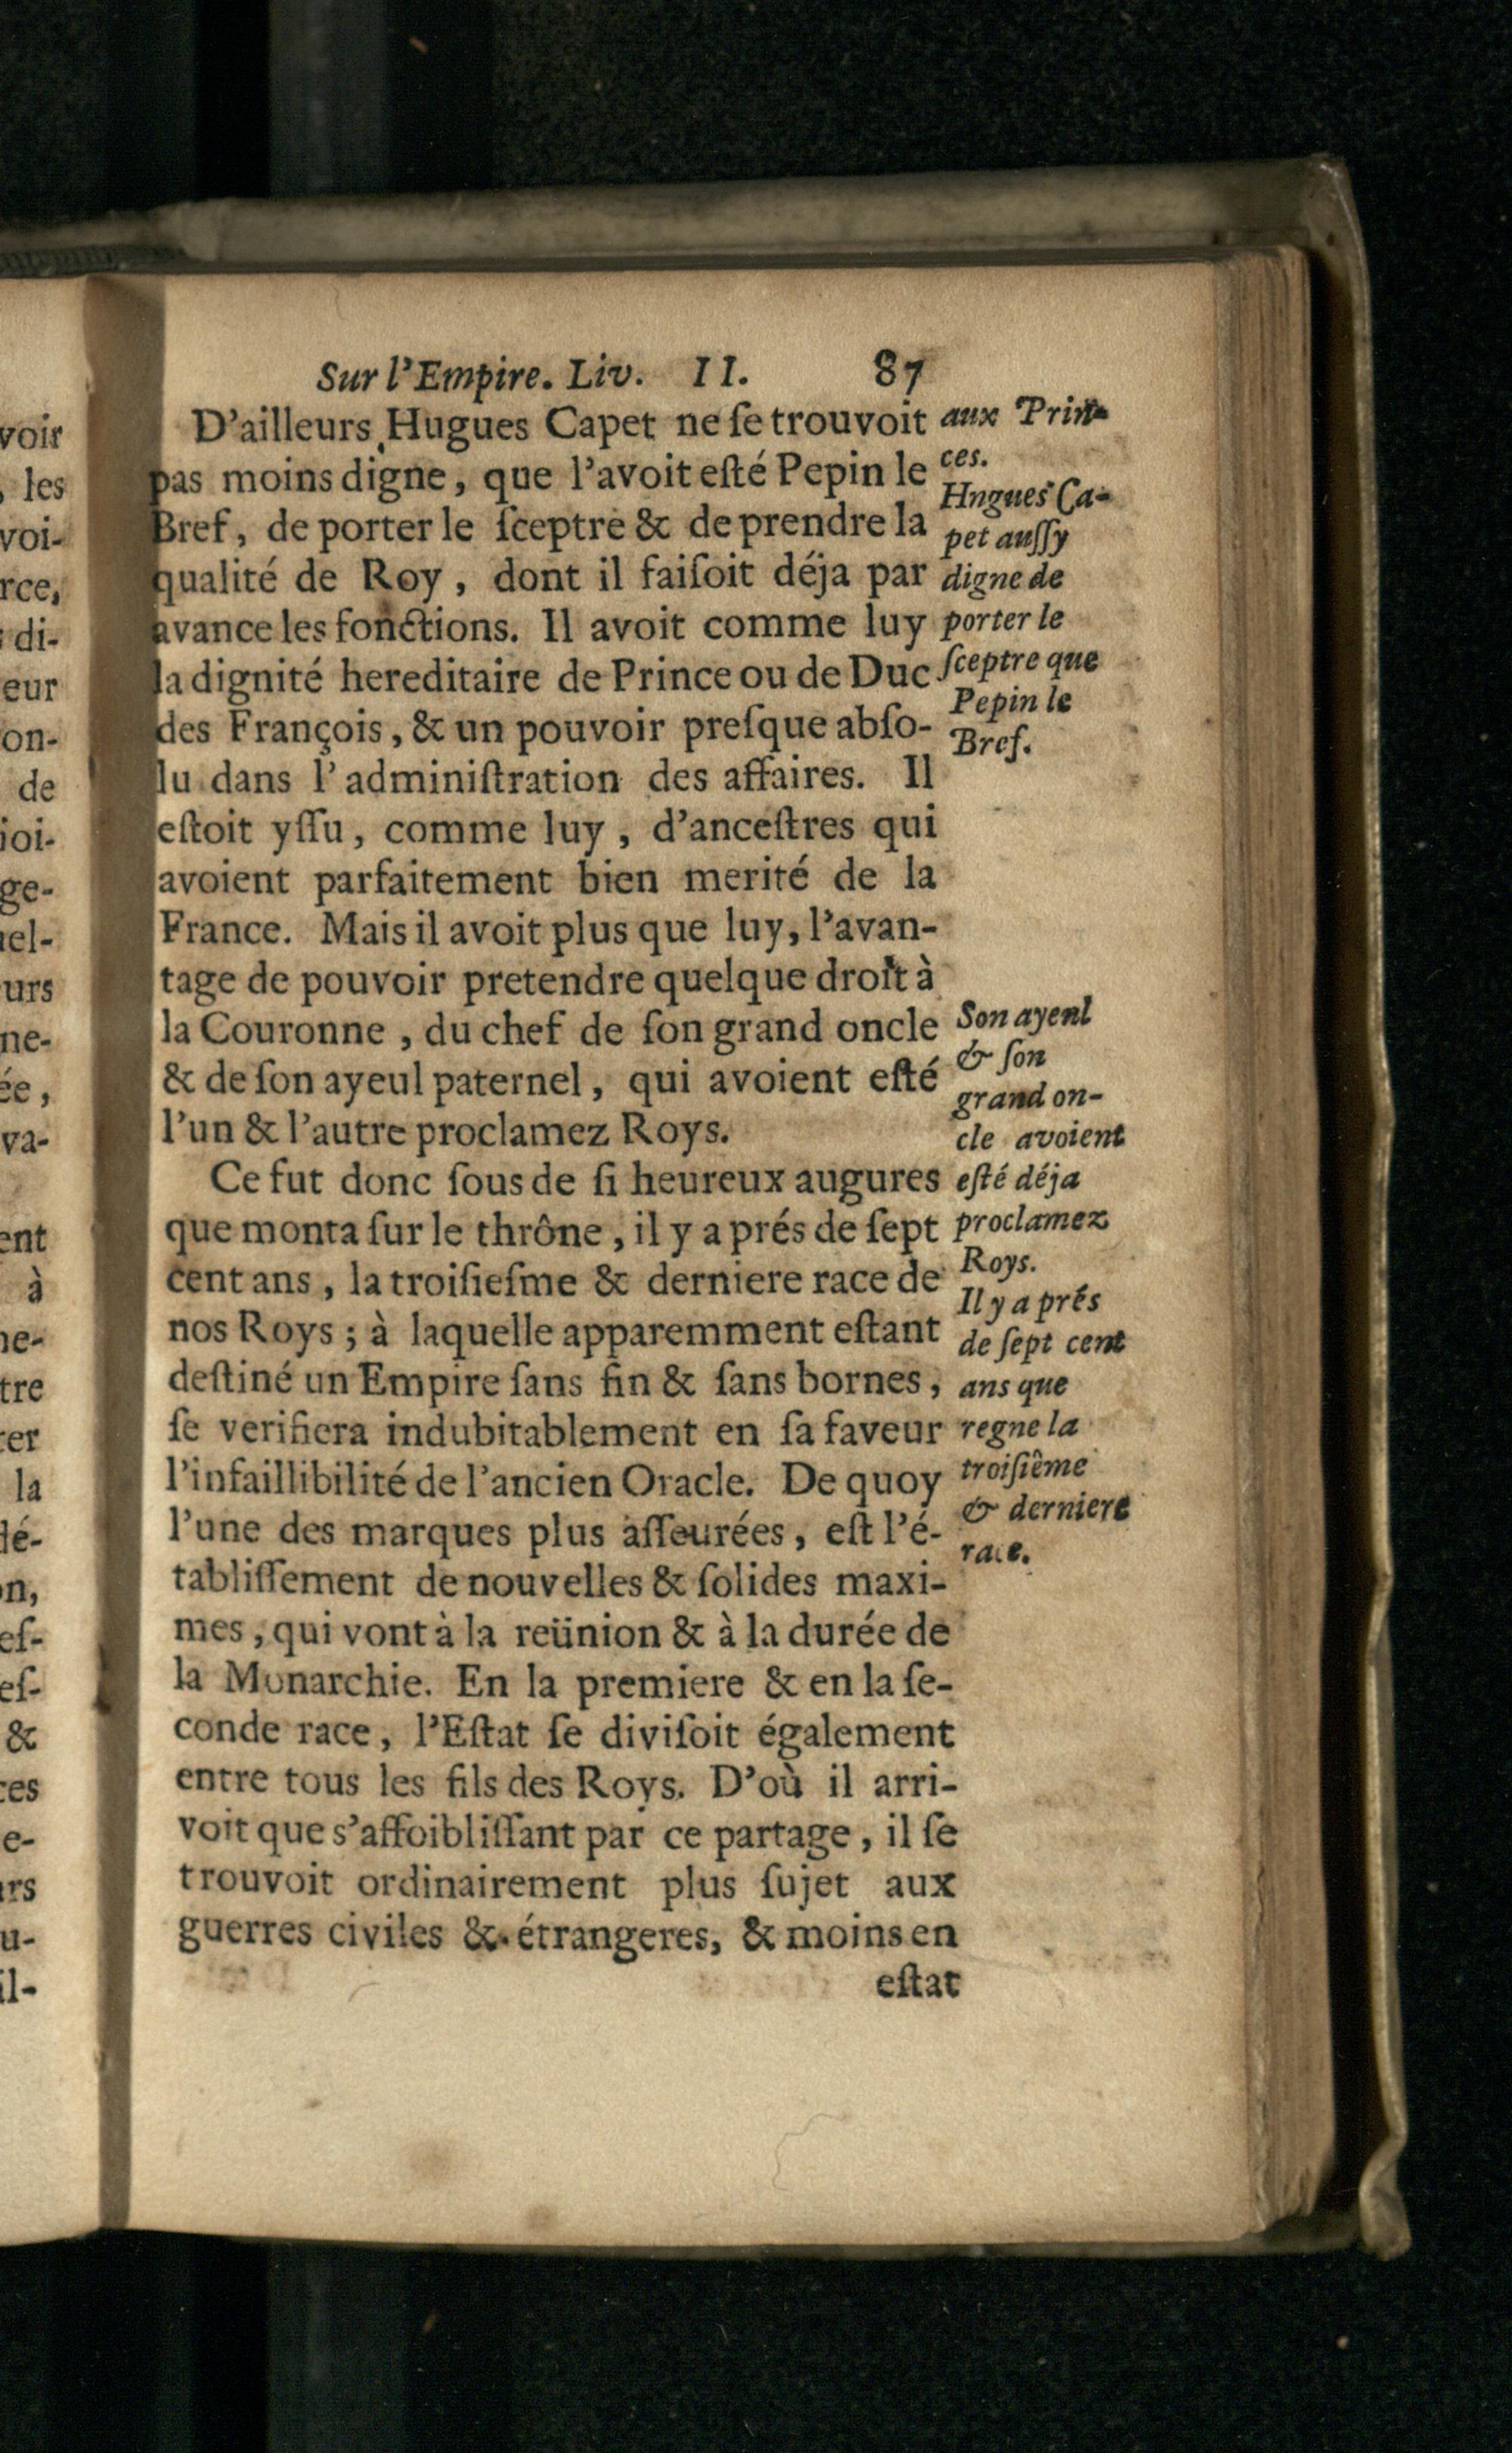 Sur l'Empire. Liv. II. 87
D'ailleurs Hugues Capet ne ſe trouvoit
pas moins digne, que l'avoit eſté Pepin le
Bref, de porter le ſceptre & de prendre la
qualité de Roy, dont il faiſoit déja par
avance les fonctions. Il avoit comme luy
la dignité hereditaire de Prince ou de Duc
des François, & un pouvoir preſque abſo-
lu dans l'adminiſtration des affaires. Il
eſtoit yſſu, comme luy, d'anceſtres qui
avoient parfaitement bien merité de la
France. Mais il avoit plus que luy, l'avan-
tage de pouvoir pretendre quelque droit à
la Couronne, du chef de ſon grand oncle
& de ſon ayeul paternel, qui avoient eſté
l'un & l'autre proclamez Roys.
Ce fut donc ſous de ſi heureux augures
que monta ſur le thrône, il y a prés de ſept
cent ans, la troiſieſme & derniere race de
nos Roys; à laquelle apparemment eſtant
deſtiné un Empire ſans fin & ſans bornes,
ſe verifiera indubitablement en ſa faveur
l'infaillibilité de l'ancien Oracle. De quoy
l'une des marques plus aſſeurées, eſt l'é-
tabliſſement de nouvelles & ſolides maxi-
mes, qui vont à la reünion & à la durée de
la Monarchie. En la premiere & en la ſe-
conde race, l'Eſtat ſe diviſoit également
entre tous les fils des Roys. D'où il arri-
voit que s'affoibliſſant par ce partage, il ſe
trouvoit ordinairement plus ſujet aux
guerres civiles & étrangeres, & moins en
eſtat
aux Prin-
ces.
Hngues Ca-
pet auſſy
digne de
porter le
ſceptre que
Pepin le
Bref.
Son ayenl
& ſon
grand on-
cle avoient
eſté déja
proclamez
Roys.
Il y a prés
de ſept cent
ans que
regne la
troiſiême
& derniere
race.